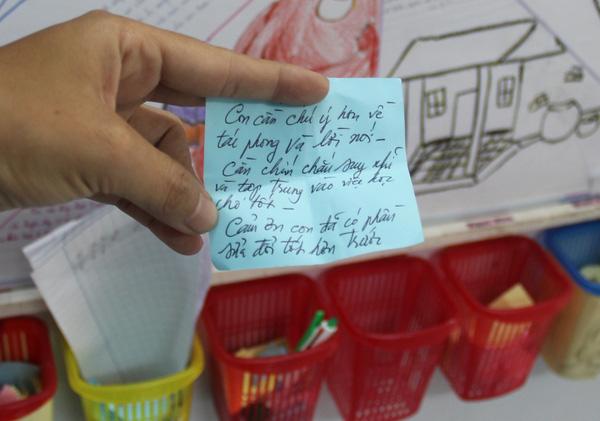 Con cần chú ý hơn về
tác phong và lời nói -
Cần chín chắn suy nghĩ
và tập trung vào việc học
cho tốt -
Cảm ơn con đã có phần
sửa đổi tốt hơn trước